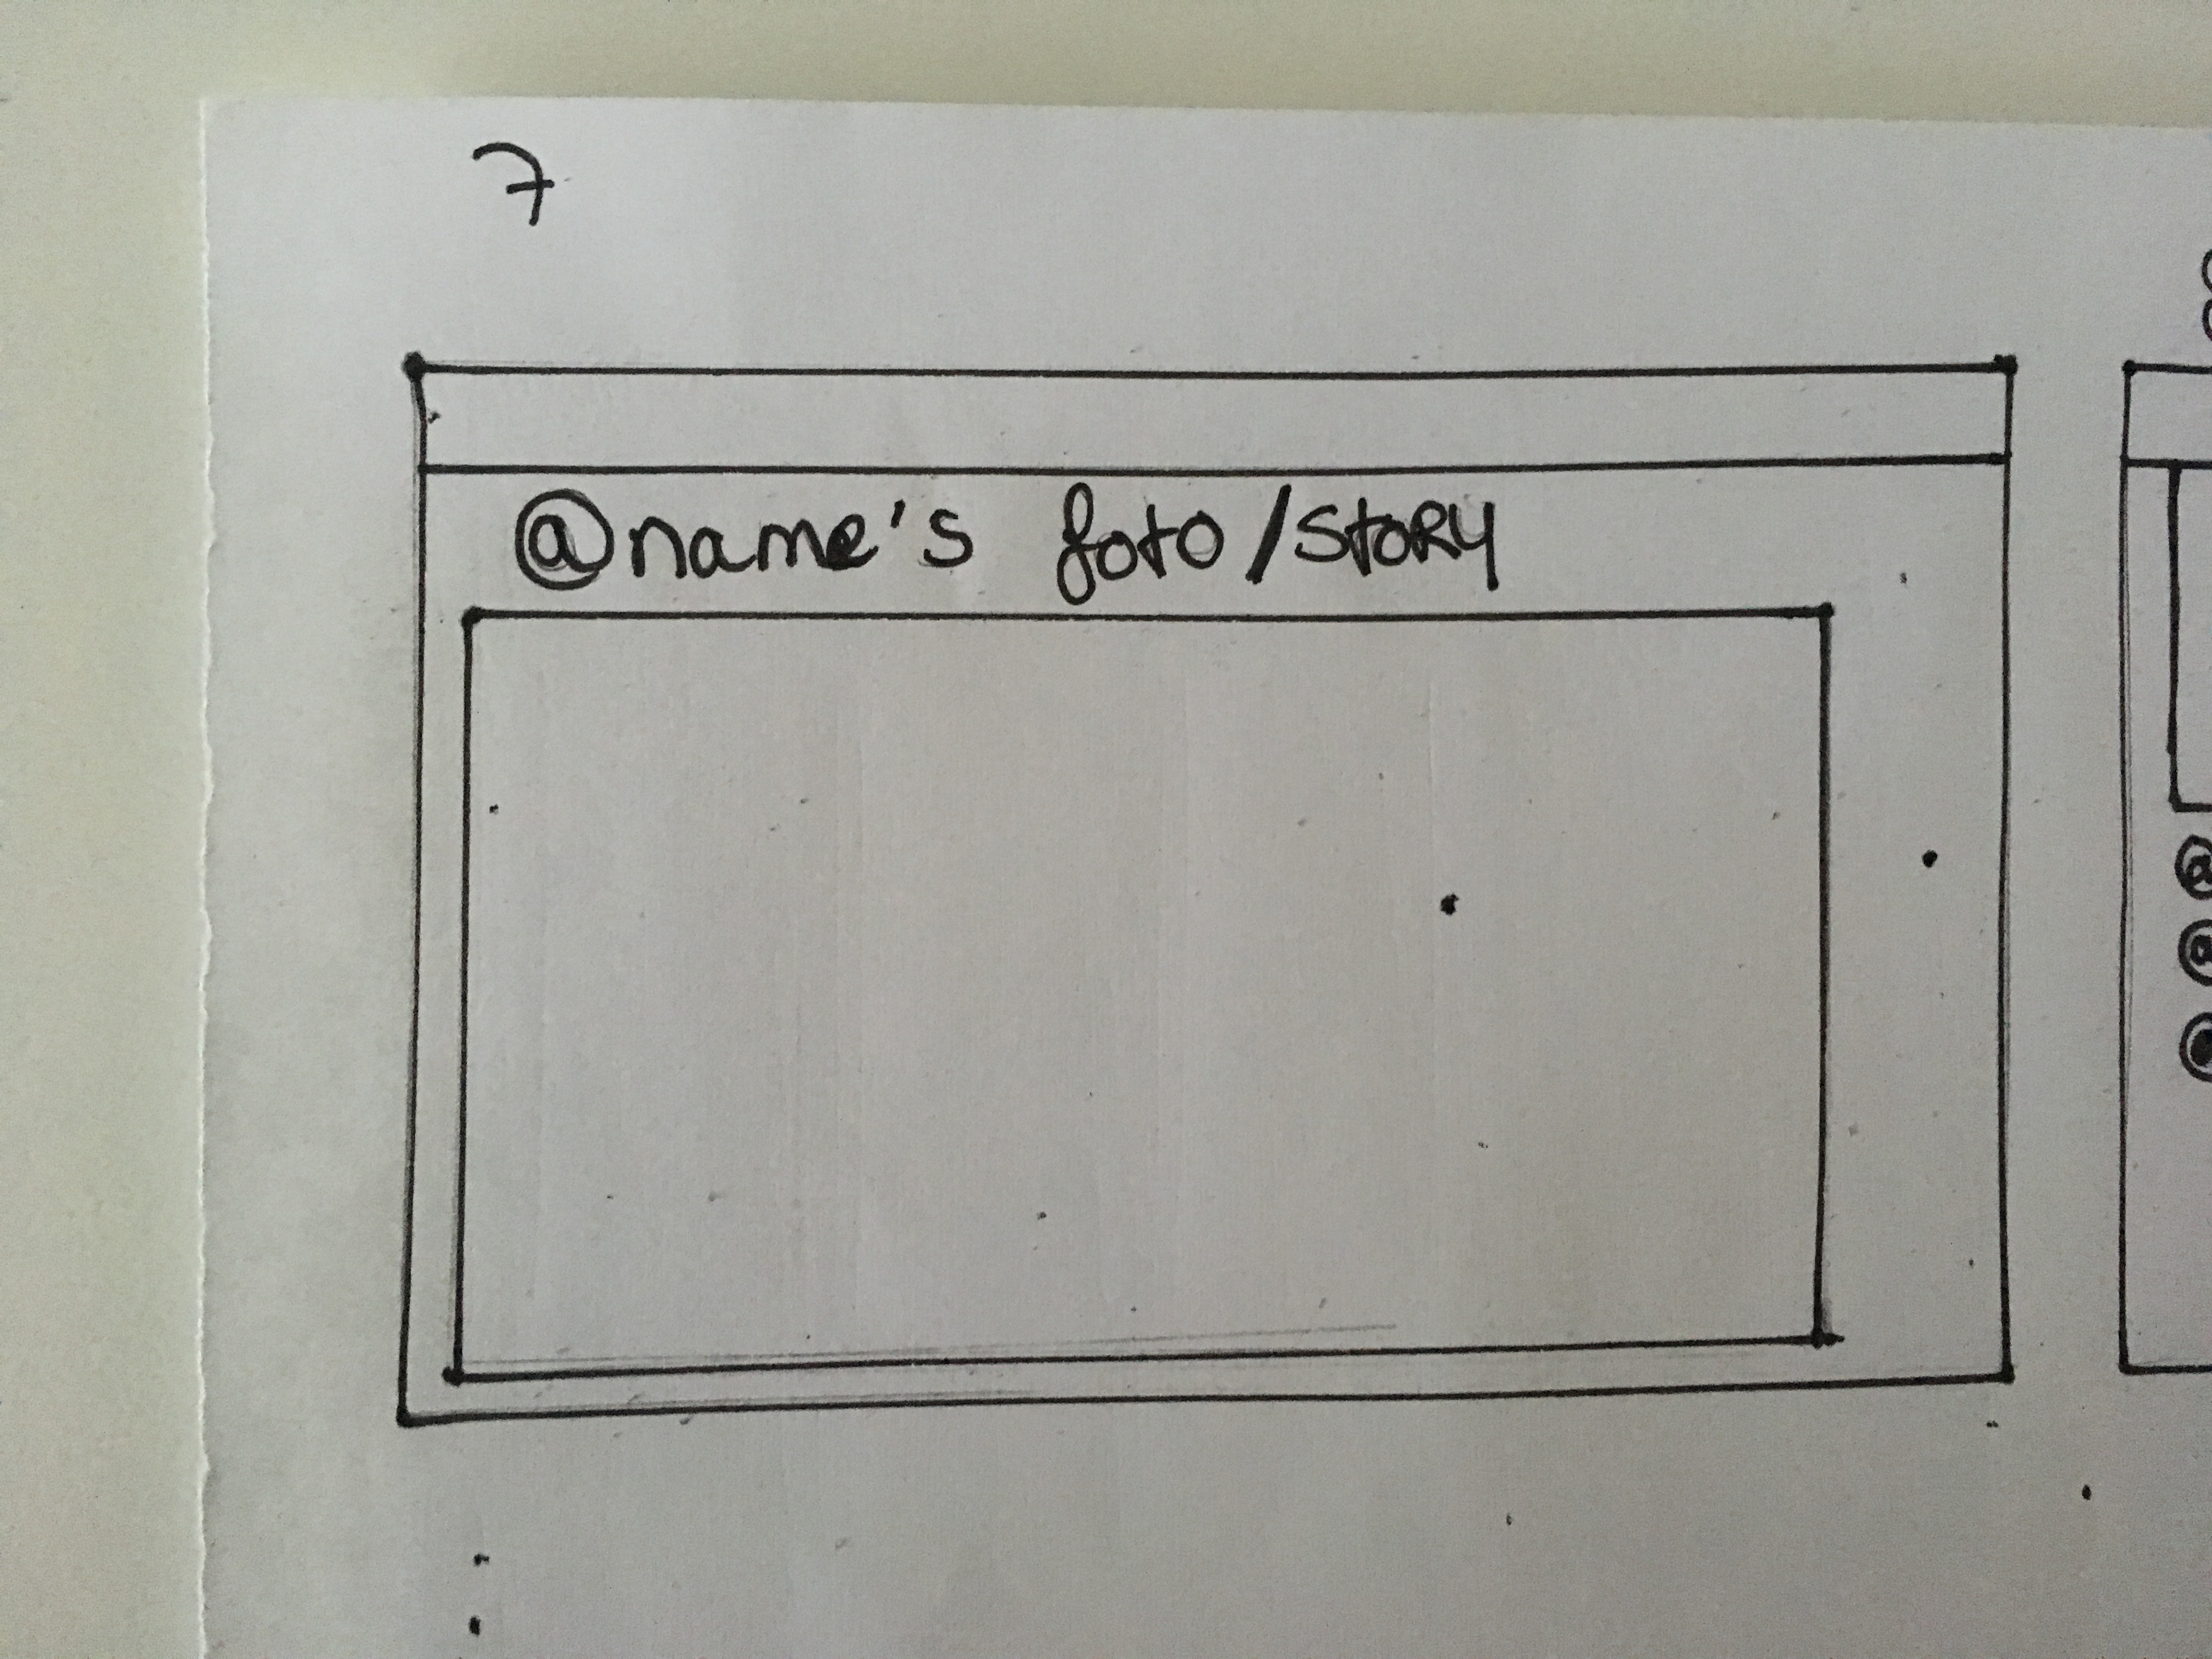 7
@name's foto/stoRy